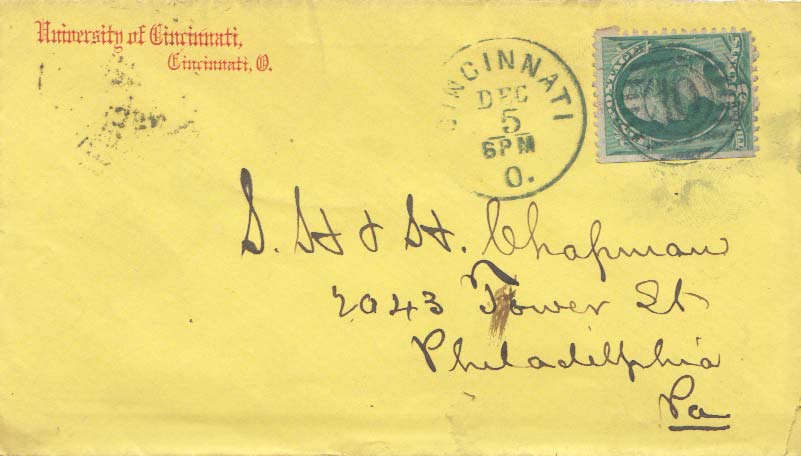 University of Cincinnati,
Cincinnati, O.
CINCINNATI
DEC
5
6PM
O.
S. H & H. Chapman
2043 Tower St
Philadelphia
Pa